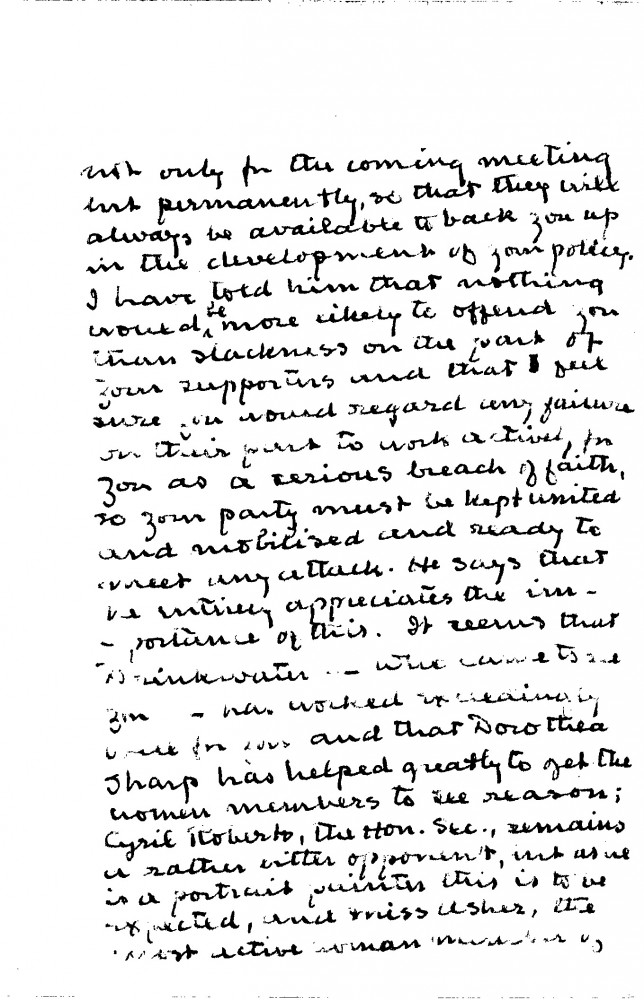 not only for the coming meeting
but permanently, so that they will
always be available to back you up
in the development of your policy.
I have told him that nothing
would be more likely to offend you
than slackness on the part of
your supporters and that I feel
sure you would regard any failure
on their part to work actively for
you as a serious breach of faith,
so your party must be kept united
and mobilised and ready to
meet any attack. He says that
he entirely appreciates the im-
-portance of this. It seems that
Drinkwater - who came to see
you - has worked exceedingly
well for you and that Dorothea
Sharp has helped greatly to get the
women members to see reason;
Cyril Roberts, the Hon. Sec., remains
a rather bitter opponent, but as he
is a portrait painter this is to be
expected, and Miss Usher, the
most active woman member of